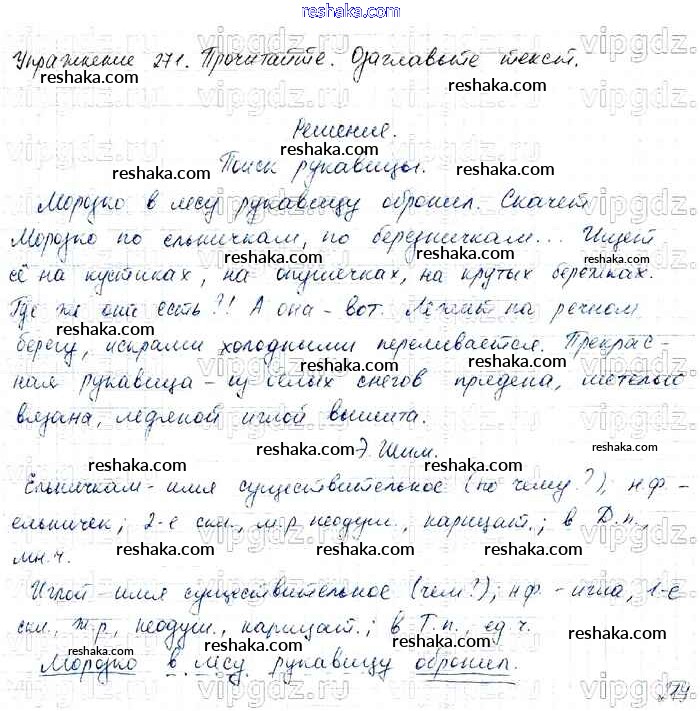 reshaka.com
Упражнение 271. Прочитайте. Озаглавьте текст.
Решение.
Поиск рукавицы.
Морозко в лесу рукавицу обронил. Скачет
Морозко по ельничкам, по березничкам... Ищет
её на кустиках, на опушечках, на крутых бережках.
Где же они есть?!! А она - вот. Лежит на речном
берегу, искрами холодными переливается. Прекрас-
ная рукавица - из белых снегов прядена, метелью
вязана, ледяной иглой вышита.
Э. Шим.
Ельничкам - имя существительное (по чему?); н.ф. -
ельничек; 2-е скл., м.р, неодуш., нарицат.; в Д.п.,
мн.ч.
Иглой - имя существительное (чем?); н.ф. - игла, 1-е
скл., ж.р., неодуш., нарицат.; в Т.п., ед.ч.
Морозко в лесу рукавицу обронил.